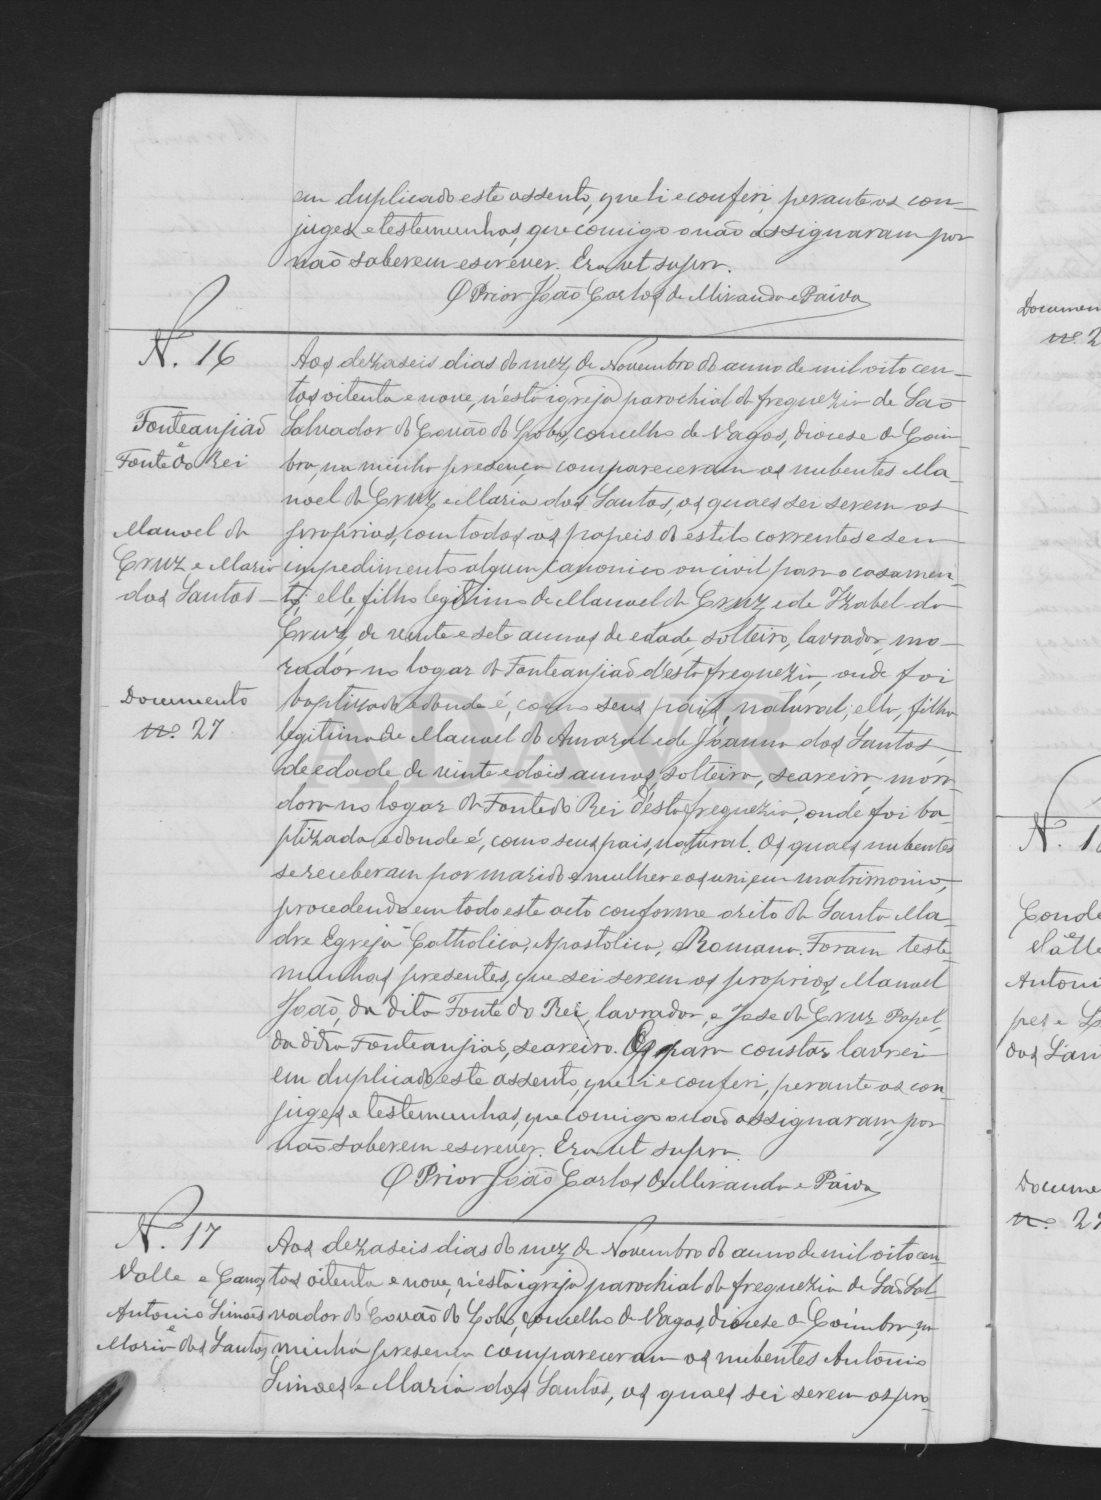 em duplicado este assento, que li e conferi, perante os con-
juges e testemunhas, que comigo o não assignaram por
não saberem escrever. Era ut supra.
O Prior João Carlos de Miranda e Paiva
N. 16
Fonteanjião
e
Fonte do Rei
Manoel da
Cruz e Maria
dos Santos
Documento
nº 27
Aos dezaseis dias do mez de Novembro do anno de mil oito cen-
tos oitenta e nove, n'esta igreja parochial da freguezia de São
Salvador do Covão do Lobo, concelho de Vagos, diocese de Coim-
bra, na minha presença compareceram os nubentes Ma-
noel da Cruz e Maria dos Santos, os quaes sei serem os
proprios, com todos os papeis do estilo correntes e sem
impedimento algum canonico ou civil para o casamen-
to; elle filho legitimo de Manoel da Cruz e de Izabel da
Cruz, de vinte e sete annos de edade, solteiro, lavrador, mo-
rador no logar da Fonteanjião d'esta freguezia, onde foi
baptizado e donde é, como seus pais, natural; ella, filha
legitima de Manoel do Amaral e de Joanna dos Santos,
de edade de vinte e dois annos, solteira, seareira, mora-
dora no logar da Fonte do Rei d'esta freguezia, onde foi ba-
ptizada e donde é, como seus pais, natural. Os quaes nubentes
se receberam por marido e mulher e os uni em matrimonio,
procedendo em todo este acto conforme o rito da Santa Ma-
dre Egreja Catholica, Apostolica, Romana. Foram teste-
munhas presentes, que sei serem os proprios, Manoel
João, da dita Fonte do Rei, lavrador, e Jose da Cruz Papel,
da dita Fonteanjião, seareiro. E para constar lavrei
em duplicado este assento, que li e conferi, perante os con-
juges e testemunhas, que comigo o não assignaram, por
não saberem escrever. Era ut supra.
O Prior João Carlos de Miranda e Paiva
N. 17
Valle e
Antonio Simões
e
Maria dos Santos
Aos dezaseis dias do mez de Novembro do anno de mil oito cen-
tos oitenta e nove, n'esta igreja parochial da freguezia de São Sal-
vador do Covão do Lobo, concelho de Vagos, diocese de Coimbra, na
minha presença compareceram os nubentes Antonio
Simões e Maria dos Santos, os quaes sei serem os pro-
Documen
nº 2
N. 1
Conde
e
Valle
Antoni
dos San
Docume
nº 2
ADAVR